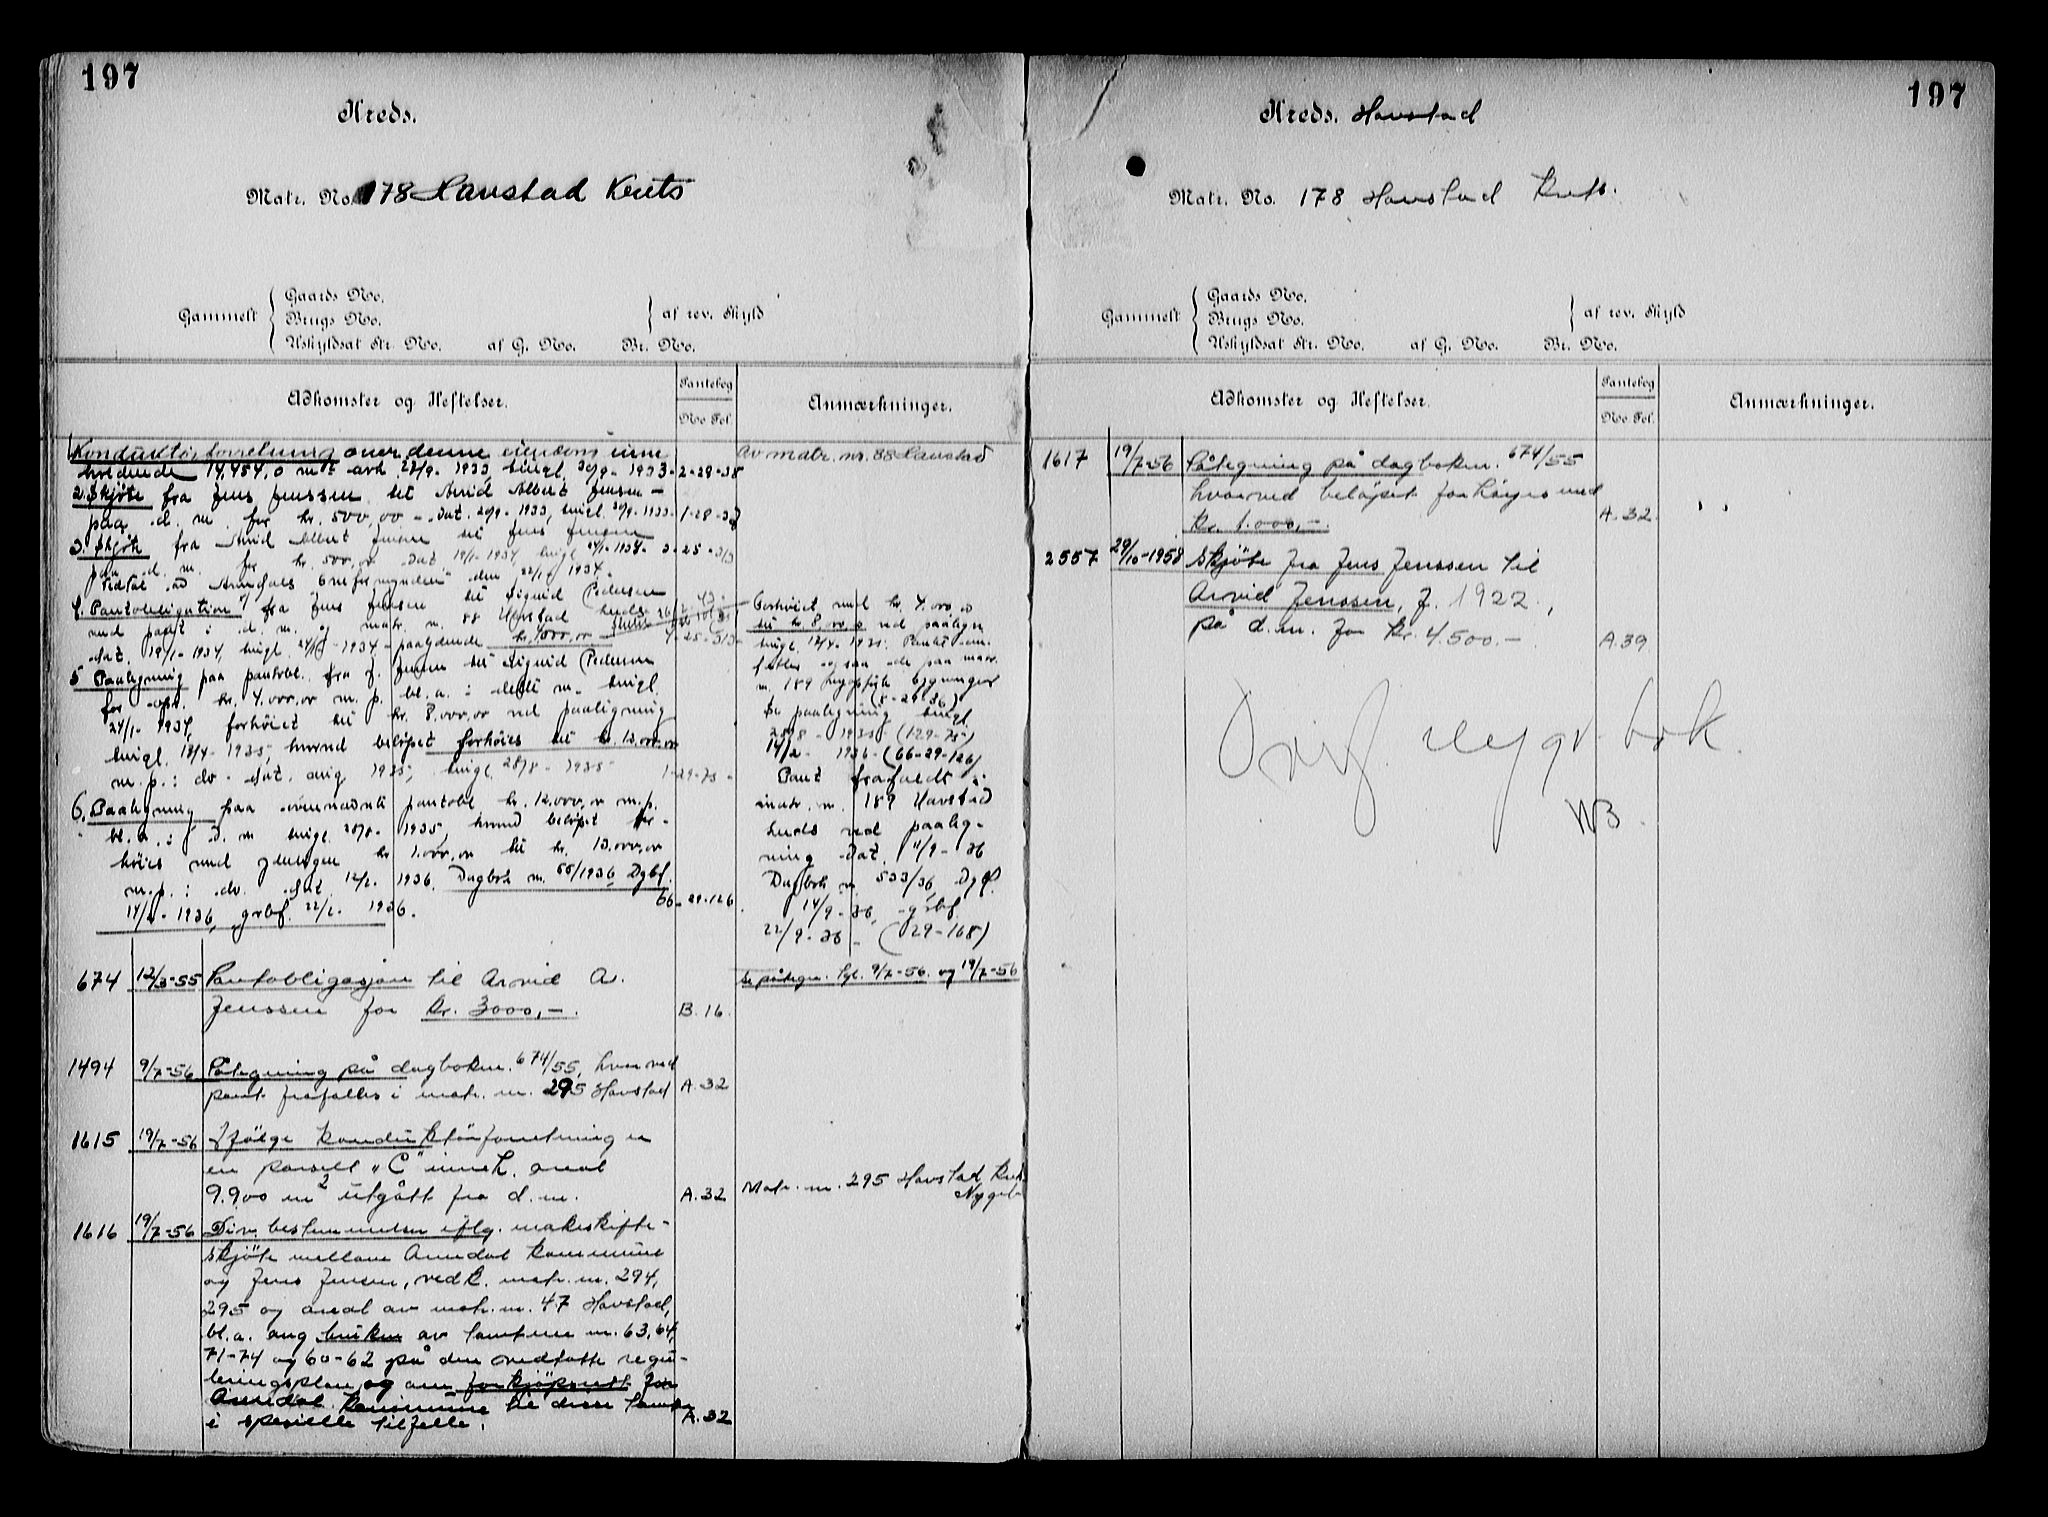 197
Kreds.
Matr. No. 178 Havstad Krets
Gammelt
Gaards No.
Brugs No.
Uskyldsat Str. No. af G. No. Br. No.
af rev. Skyld
Adkomster og Heftelser.
Pantebog
No Fol.
Anmærkninger.
Konduktørforretning over denne eiendom inne-
holdende 14,454,0 m² avh. 27/9- 1933, tingl. 30/9- 1933- 2-28-38
Av matr. nr. 88 Havstad
2. Skjøte fra Jens Jenssen til Arvid Albert Jensen -
paa d. m. for kr. 500,00 - Dat. 29/9- 1933, tingl. 30/9- 1933- 1-28-38
3. Skjøte fra Arvid Albert Jensen til Jens Jensen
paa d. m. for kr. 500,00 Dat. 19/1- 1934, tingl. 24/1- 1934- 3-25-313
Vidtat av Arendals Overformynderi den 22/1- 1934.
4. Pantobligation fra Jens Jensen til Sigurd Pedersen
med pant i d. m. og matr. nr. 88 Havstad
Dat. 19/1- 1934, tingl. 24/1- 1934 - paalydende kr. 4.000,00 4-25-313
5 Paategning paa pantobl. fra J. Jensen til Sigurd Pedersen
for opr. kr. 4.000,00 m. p. bl. a. i dette m. tingl.
24/1- 1934, forhöiet til kr. 8.000,00 ved paategning
tingl. 12/4- 1935, hvorved beløpet forhöies til kr. 12.000,00
m. p. i do. Dat. aug 1935, tingl. 28/8- 1935 1-29-75-
6. Paategning paa ovennævnte pantobl. kr. 12.000,00 m.p.
bl. a. i d. m. tingl. 28/8- 1935, hvorved beløpet for-
höies med yderligere kr. 1.000,00 til kr. 13.000,00
m.p. i do. Dat. 12/2. 1936. Dagbok nr. 66/1936 Dgbf.
14/2- 1936, grbf. 22/2- 1936. 66-29-126
Forhöiet med kr. 4.000,00
til kr. 8.000,00 ved paategn.
tingl. 12/4- 1935. Pantet om-
fatter ogsaa de paa matr.
nr. 189 bygninger
(8-29-36)
Se paategning tingl.
28/8- 1935- (1-29-75)
14/2- 1936- (66-29-126)
Pant frafaldt i
matr. nr. 189 Havstad
kreds ved paateg-
ning Dat. 11/9- 36
Dagbok nr. 533/36, Dgbf.
14/9- 36, grbf.
22/9- 36 - (29-168)
674 12/3-55 Pantobligasjon til Arvid A.
Jenssen for kr. 3000,-. B. 16.
Se påtegn. tgl. 9/7-56. og 19/7-56
1494 9/7-56 Påtegning på dagboknr. 674/55, hvorved
pant frafalles i matr. nr. 295 Havstad A. 32
1615 19/7-56 Ifölge konduktörforretning er
en parsell "C" inneh. areal
9.900 m² utgått fra d. nr. A. 32
Matr. nr. 295 Havstad Krets
1616 19/7-56 Div. bestemmelser ifölg. makeskifte-
skjöte mellom Arendal kommune
og Jens Jensen, vedk. matr. nr. 294,
295 og areal av matr. nr. 47 Havstad,
bl. a. ang bruken av tomtene nr. 63, 64,
71-74 og 60-62 på den vedtatte regu-
leringsplan, og om forkjöpsrett for
Arendal kommune til disse tomter
i spesielle tilfelle. A. 32
197
Kreds. Havstad
Matr. No. 178 Havstad Krets.
Gammelt
Gaards No.
Brugs No.
Uskyldsat Str. No. af G. No. Br. No.
af rev. Skyld
Adkomster og Heftelser.
Pantebog
No Fol.
Anmærkninger.
1617 19/7-56 Påtegning på dagboknr. 674/55
hvorved beløpet forhöyes med
kr. 1.000,-. A. 32. " "
2557 29/10-1958 Skjøte fra Jens Jenssen til
Arvid Jenssen, f. 1922.,
på d.nr. for kr. 4.500.- A. 39
Overf. ny gr. bok.